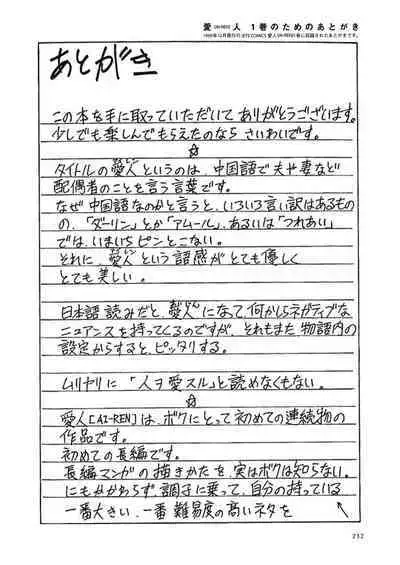 愛[AI-REN]人 1巻のためのあとがき
1999年12月発行の JETS COMICS 愛人[AI-REN]1巻に収録されたあとがきです。
あとがき
この本を手に取っていただいて ありがとうございます。
少しでも楽しんでもらえたのなら さいわいです。
☆
タイトルの愛人というのは、中国語で夫や妻など
配偶者のことを言う言葉です。
なぜ中国語なのかと言うと、いろいろ言い訳はあるもの
の、「ダーリン」とか「アムール」、あるいは「つれあい」
では、いまいちピンとこない。
それに、愛人という語感がとても優しく
とても美しい。
日本語読みだと、愛人になって何かしらネガティブな
ニュアンスを持ってくるのですが、それもまた物語内の
設定からすると、ピッタリする。
ムリヤリに「人ヲ愛スル」と読めなくもない。
☆
愛人[AI-REN]は、ボクにとって初めての連続物の
作品です。
初めての長編です。
長編マンガの描きかたを、実はボクは知らない。
にもかかわらず、調子に乗って、自分の持っている
一番大きい、一番難易度の高いネタを
212